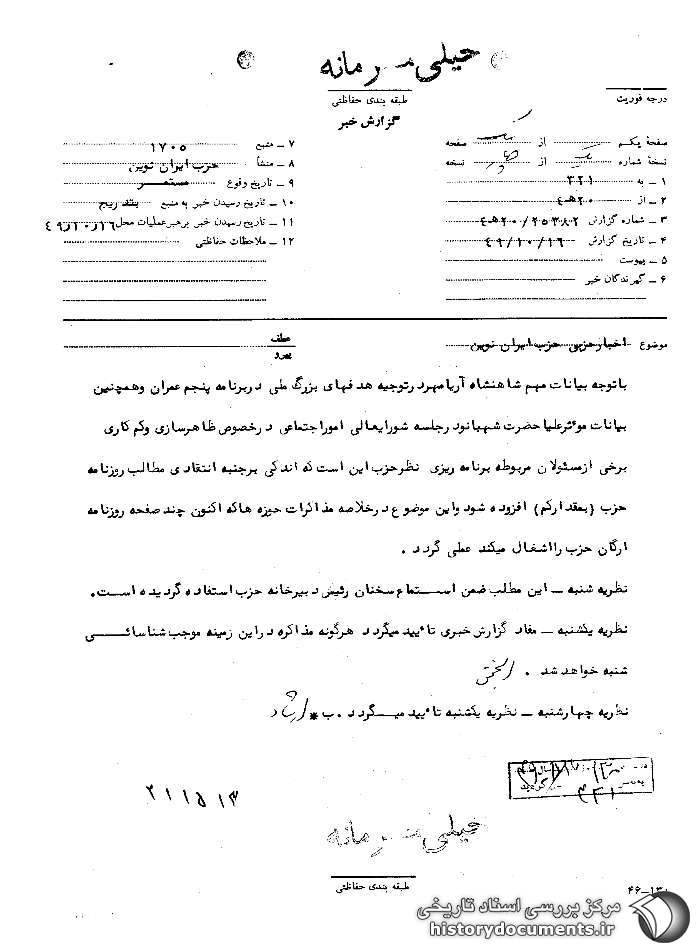 خیلی محرمانه
طبقه بندی حفاظتی
گزارش خبر
درجه فوریت
صفحه یکم از یک صفحه
نسخه شماره یک از نسخه
۱ ـ به ۳۲۱
۲ ـ از ۲۰هـ٤
۳ ـ شماره گزارش ۲۵۳۸۲/۲۰هـ٤
۴ ـ تاریخ گزارش ٤٩/١٠/١٦
۵ ـ پیوست
۶ ـ گیرندگان خبر
۷ ـ منبع ۱۷۰۵
۸ ـ منشأ حزب ایران نوین
۹ ـ تاریخ وقوع مستمر
۱۰ ـ تاریخ رسیدن خبر به منبع بتدریج
۱۱ ـ تاریخ رسیدن خبر برهبر عملیات محل ٤٩/١٠/١٦
۱۲ ـ ملاحظات حفاظتی
موضوع اخبار حزبی حزب ایران نوین
عطف
پیرو
باتوجه بیانات مهم شاهنشاه آریامهر درتوجیه هدفهای بزرگ ملی دربرنامه پنجم عمران وهمچنین
بیانات موثرعلیاحضرت شهبانو درجلسه شورایعالی اموراجتماعی درخصوص ظاهرسازی وکم کاری
برخی ازمسئولان مربوطه برنامه ریزی نظرحزب این است که اندکی برجنبه انتقادی مطالب روزنامه
حزب (بمقدارکم) افزوده شود واین موضوع درخلاصه مذاکرات حوزه هاکه اکنون چند صفحه روزنامه
ارگان حزب رااشغال میکند عملی گردد .
نظریه شنبه ـ این مطلب ضمن استماع سخنان رئیس دبیرخانه حزب استفاده گردیده است.
نظریه یکشنبه ـ مفاد گزارش خبری تائید میگردد هرگونه مذاکره دراین زمینه موجب شناسائی
شنبه خواهد شد .
نظریه چهارشنبه ـ نظریه یکشنبه تائید میگردد .ب* ارشاد
۲۱۱۵۱۳
خیلی محرمانه
طبقه بندی حفاظتی
مرکز بررسی اسناد تاریخی
historydocuments.ir